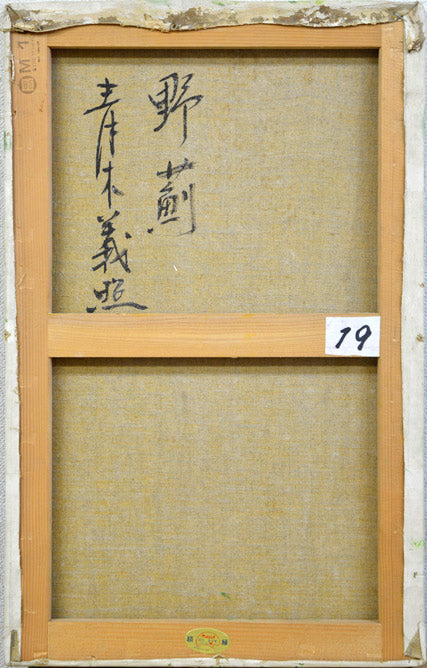 野薊
青木義照
19
M